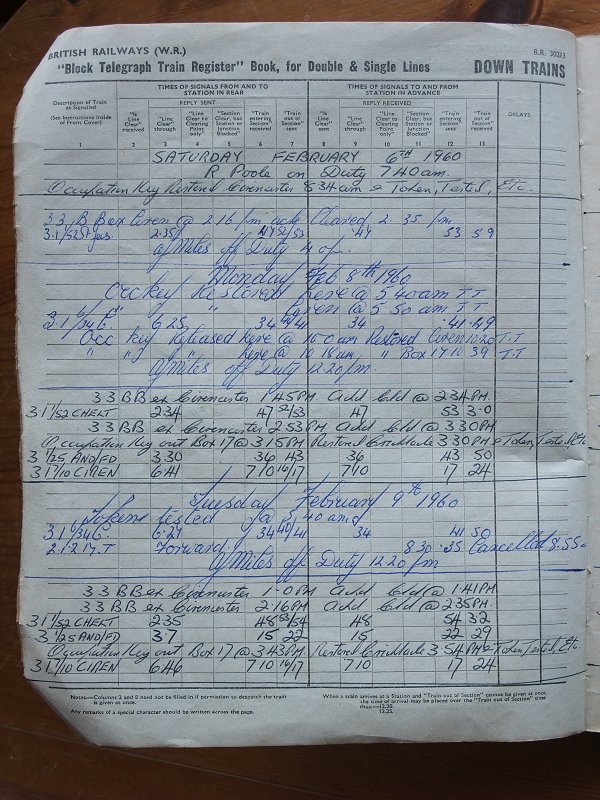 BRITISH RAILWAYS (W.R.)
B.R. 30213
"Block Telegraph Train Register" Book, for Double & Single Lines DOWN TRAINS
TIMES OF SIGNALS FROM AND TO STATION IN REAR
TIMES OF SIGNALS TO AND FROM STATION IN ADVANCE
Description of Train as Signalled
(See Instructions inside of Front Cover)
REPLY SENT
REPLY RECEIVED
DELAYS
"Is Line Clear" received
"Line Clear" through
"Line Clear to Clearing Point only"
"Section Clear, but Station or Junction Blocked"
"Train entering Section" received
"Train out of Section" sent
"Is Line Clear" sent
"Line Clear" through
"Line Clear to Clearing Point only"
"Section Clear, but Station or Junction Blocked"
"Train entering Section" sent
"Train out of Section" received
1 2 3 4 5 6 7 8 9 10 11 12 13
SATURDAY FEBRUARY 6TH 1960
R. Poole on Duty 7.40am.
Occupation Key Restored Cirencester 8.34am & Token, Tested, Etc.
3 3 B Box Ciren @ 2.16 pm ack Cleared 2 35 pm
2.35 47 52/53 47 53 59
Miles off Duty
Monday Feb 8th 1960
Occ key Restored here @ 5 40am T.T
" " " Ciren @ 5 50 am T T
6 25 34 40/41 34 41 49
Occ key Released here @ 10 0 am Restored Ciren 10 20 T.T
" " " here @ 10 18 am " Box 17 10 39 T.T
Miles off Duty 12.20pm.
3 3 BB ex Cirencester 1.45PM Ackd Cld @ 2.34PM.
3 1/52 CHELT 2.34 47 52/53 47 53 3.0
3 3 BB ex Cirencester 2.53PM Ackd Cld @ 3.30PM
Occupation Key out Box 17 @ 3.15PM Restored Cricklade 3.30PM & Token, Tested, Etc
3 1/25 AND/FD 3.30 36 43 36 43 50
3 1 7/10 CIREN 6.41 7.10 16/17 7.10 17 24
Tuesday February 9th 1960
Tokens tested @ 5,40 am
6.27 34 40/41 34 41 50
Forward 8 30 .35 Cancelled 8.55
Miles off Duty 12.20 pm
3 3 BB ex Cirencester 1.0PM Ackd Cld @ 1.41PM
3 3 BB ex Cirencester 2.16PM Ackd Cld @ 2.35PM.
3 1/52 CHELT 2.35 48 53/54 48 54 32
3 1/25 AND/FD 3.7 15 22 15 22 29
Occupation Key out Box 17 @ 3.43PM. Restored Cricklade 3.54PM & Token, Tested, Etc.
3 1 7/10 CIREN 6.46 7.10 16/17 7.10 17 24
Notes.—Columns 2 and 8 need not be filled in if permission to despatch the train is given at once.
Any remarks of a special character should be written across the page.
When a train arrives at a Station and "Train out of Section" cannot be given at once, the time of arrival may be placed over the "Train out of Section" time thus:—12.20. 12.25.